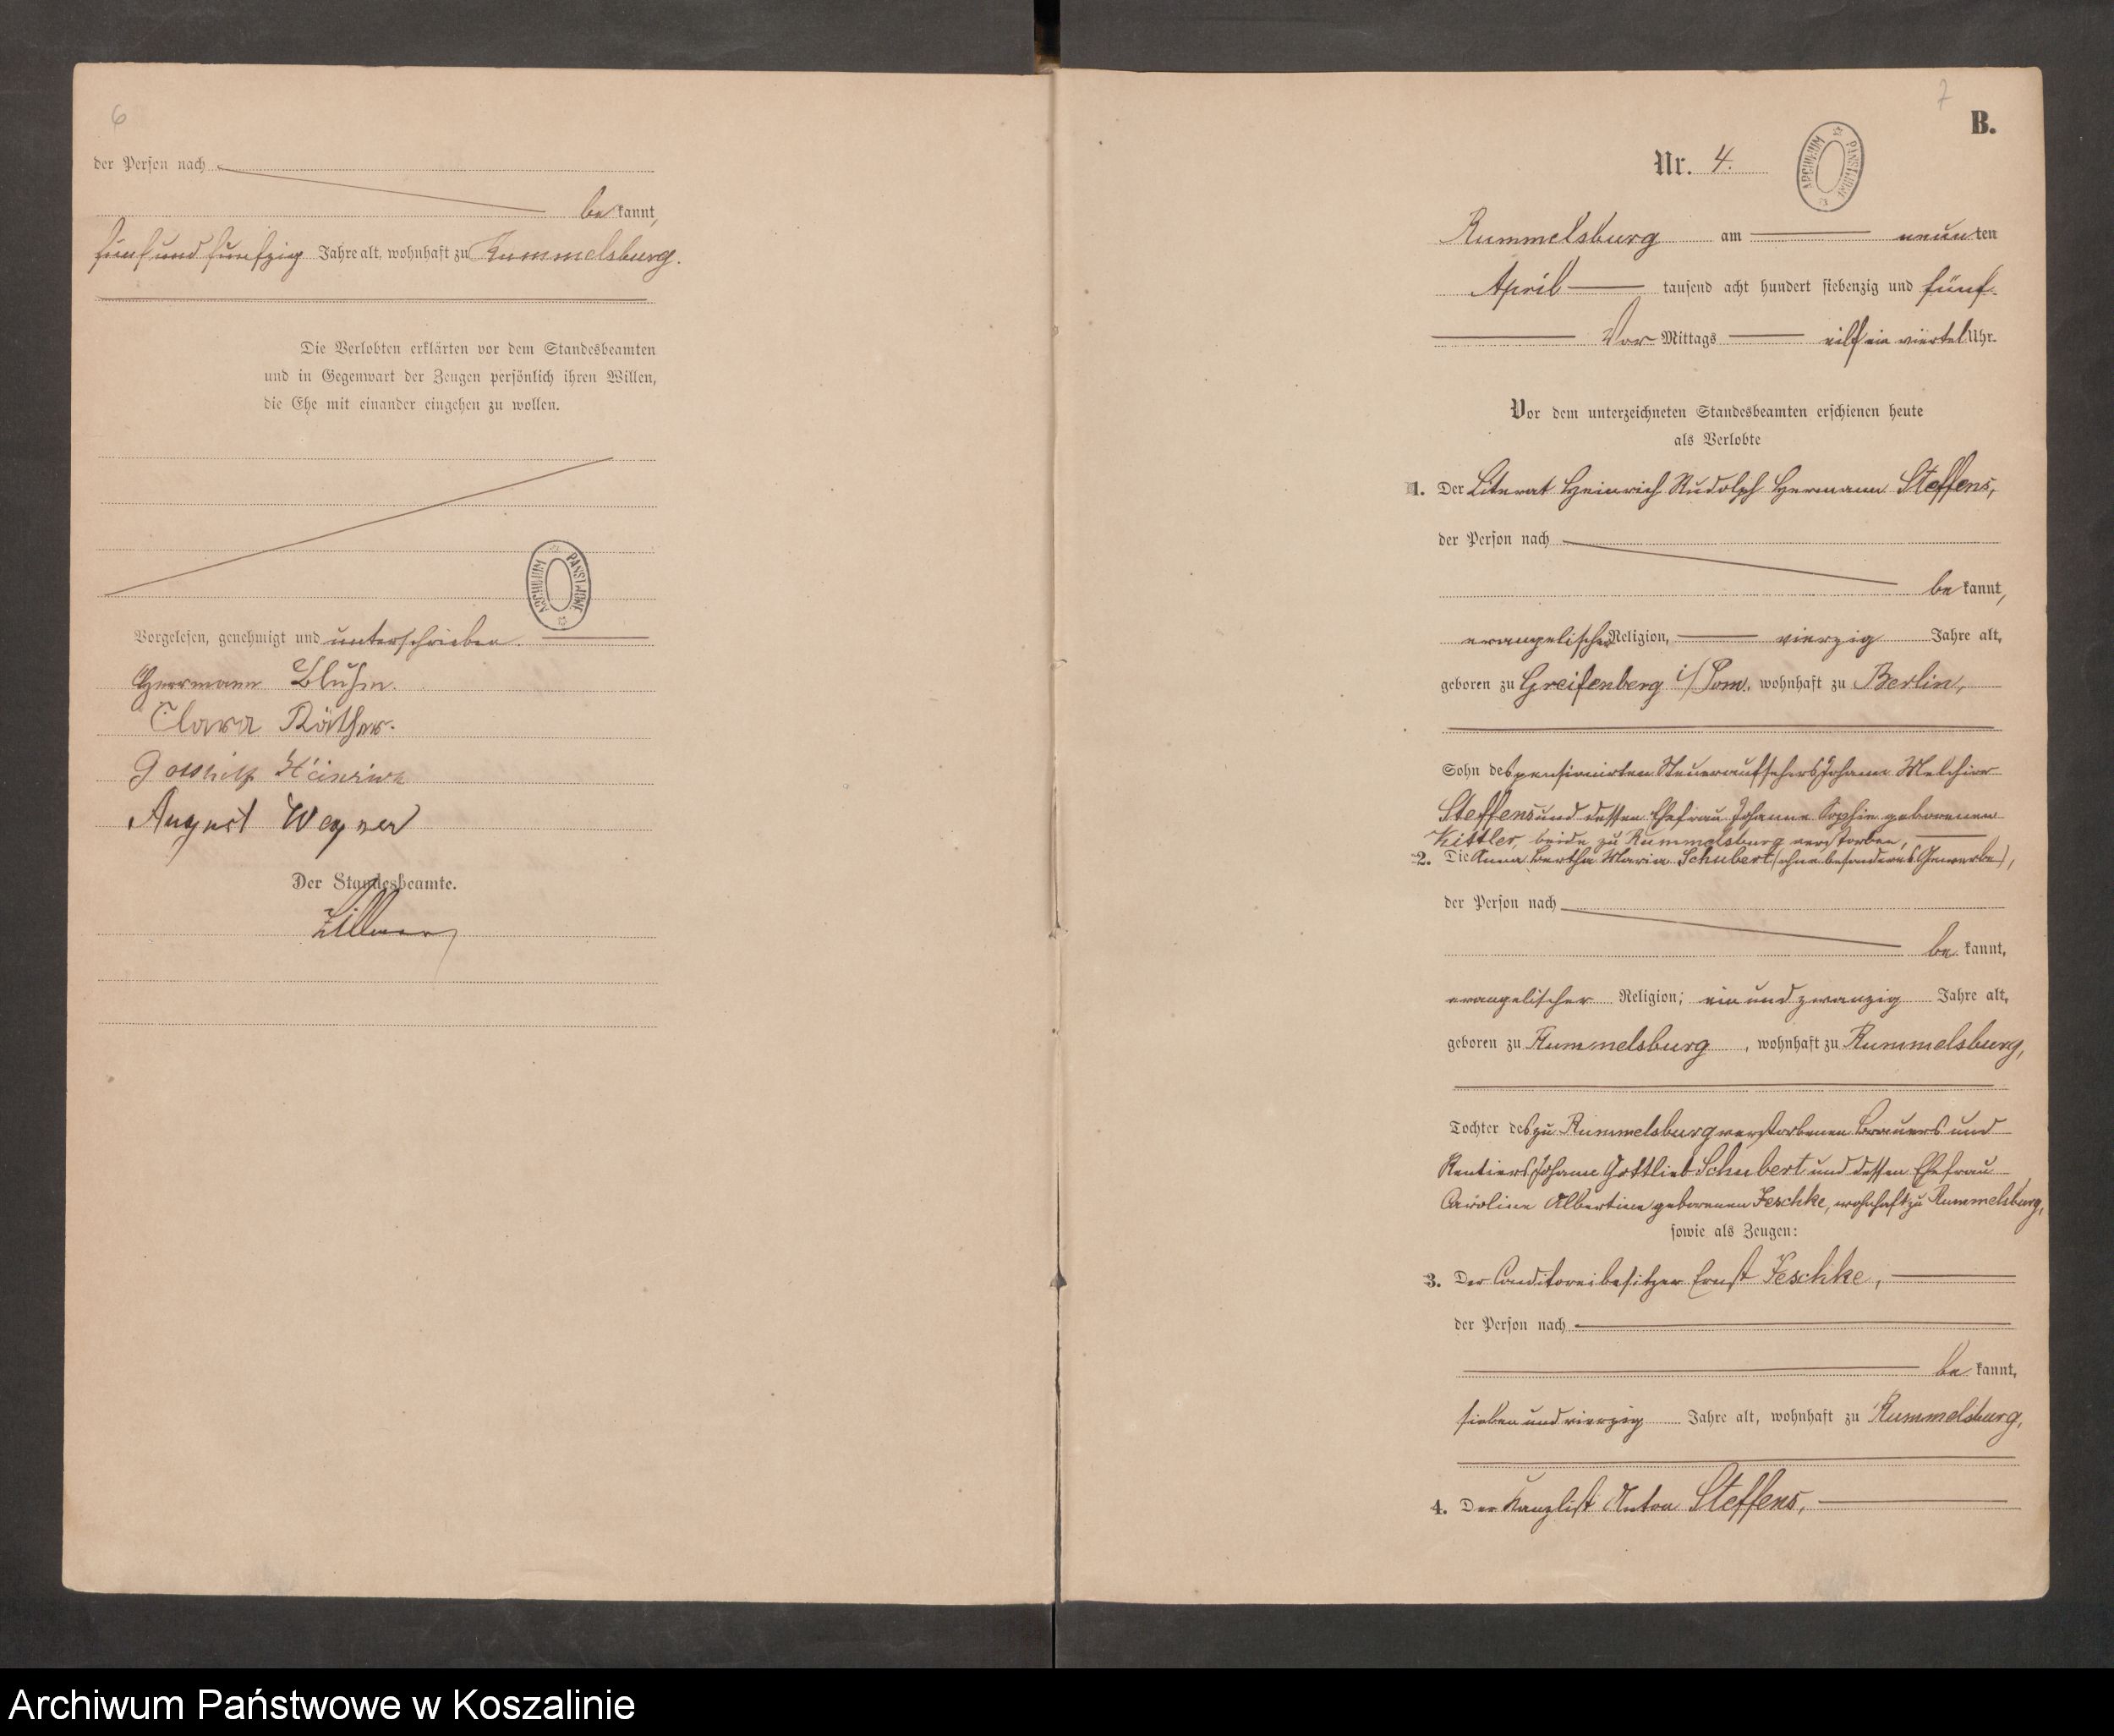 6
der Person nach
bekannt,
fünf und funfzig Jahre alt, wohnhaft zu Rummelsburg.
Die Verlobten erklärten vor dem Standesbeamten
und in Gegenwart der Zeugen persönlich ihren Willen,
die Ehe mit einander eingehen zu wollen.
ARCHIWUM PAŃSTWOWE
Vorgelesen, genehmigt und unterschrieben.
Herrmann Bluhm.
Clara Käther.
Gotthilf Heinrich
August Wegner
Der Standesbeamte.
Zillmer
7
B.
Nr. 4.
ARCHIWUM PAŃSTWOWE
Rummelsburg am neunten
April tausend acht hundert siebenzig und fünf
Vor Mittags eilf ein viertel Uhr.
Vor dem unterzeichneten Standesbeamten erschienen heute
als Verlobte
1. Der Literat Heinrich Rudolph Hermann Steffens,
der Person nach
bekannt,
evangelischer Religion, vierzig Jahre alt,
geboren zu Greifenberg i/Pom. wohnhaft zu Berlin,
Sohn des pensionirten Steueraufsehers Johann Melchior
Steffens und dessen Ehefrau Johanne Sophie geborenen
Kittler, beide zu Rummelsburg verstorben,
2. Die Anna Bertha Maria Schubert (ohne besonderes Gewerbe),
der Person nach
bekannt,
evangelischer Religion; ein und zwanzig Jahre alt,
geboren zu Rummelsburg, wohnhaft zu Rummelsburg,
Tochter des zu Rummelsburg verstorbenen Brauers und
Rentiers Johann Gottlieb Schubert und dessen Ehefrau
Caroline Albertine geborenen Jeschke, wohnhaft zu Rummelsburg,
sowie als Zeugen:
3. Der Conditoreibesitzer Ernst Jeschke,
der Person nach
bekannt,
sieben und vierzig Jahre alt, wohnhaft zu Rummelsburg,
4. Der Kanzlist Anton Steffens,
Archiwum Państwowe w Koszalinie